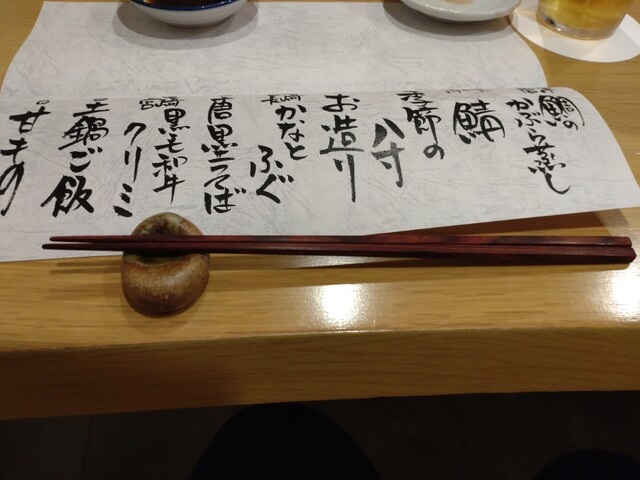 鯛の
かぶら蒸し
鯖
季節の
八寸
お造り
長崎 かなと
ふぐ
唐墨そば
宮崎 黒毛和牛
クリミ
土鍋ご飯
甘もの